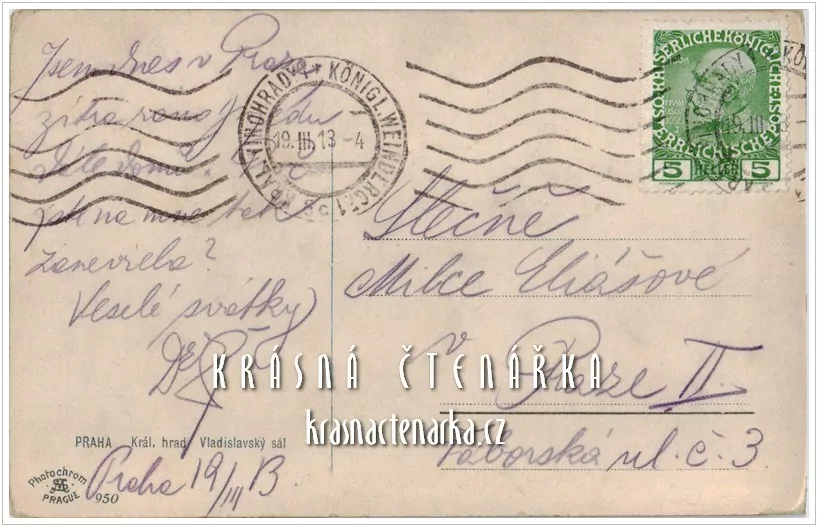 Jsem dnes v Praze
zítra ráno jedu
dále domů.
jak na mne tak
zanevřela?
Veselé svátky
PRAHA Král. hrad. Vladislavský sál
Praha 19/III 13
Photochrom
PRAGUE
950
KÖNIGL. WEINBERGE 1
VINOHRADY
19.III.13-4
KAISERLICHE KÖNIGLICHE
ÖSTERREICHISCHE POST
5 HELLER 5
Slečně
Milce Eliášové
v
Praze II.
Táborská ul. č. 3
KRÁSNÁ ČTENÁŘKA
krasnactenarka.cz